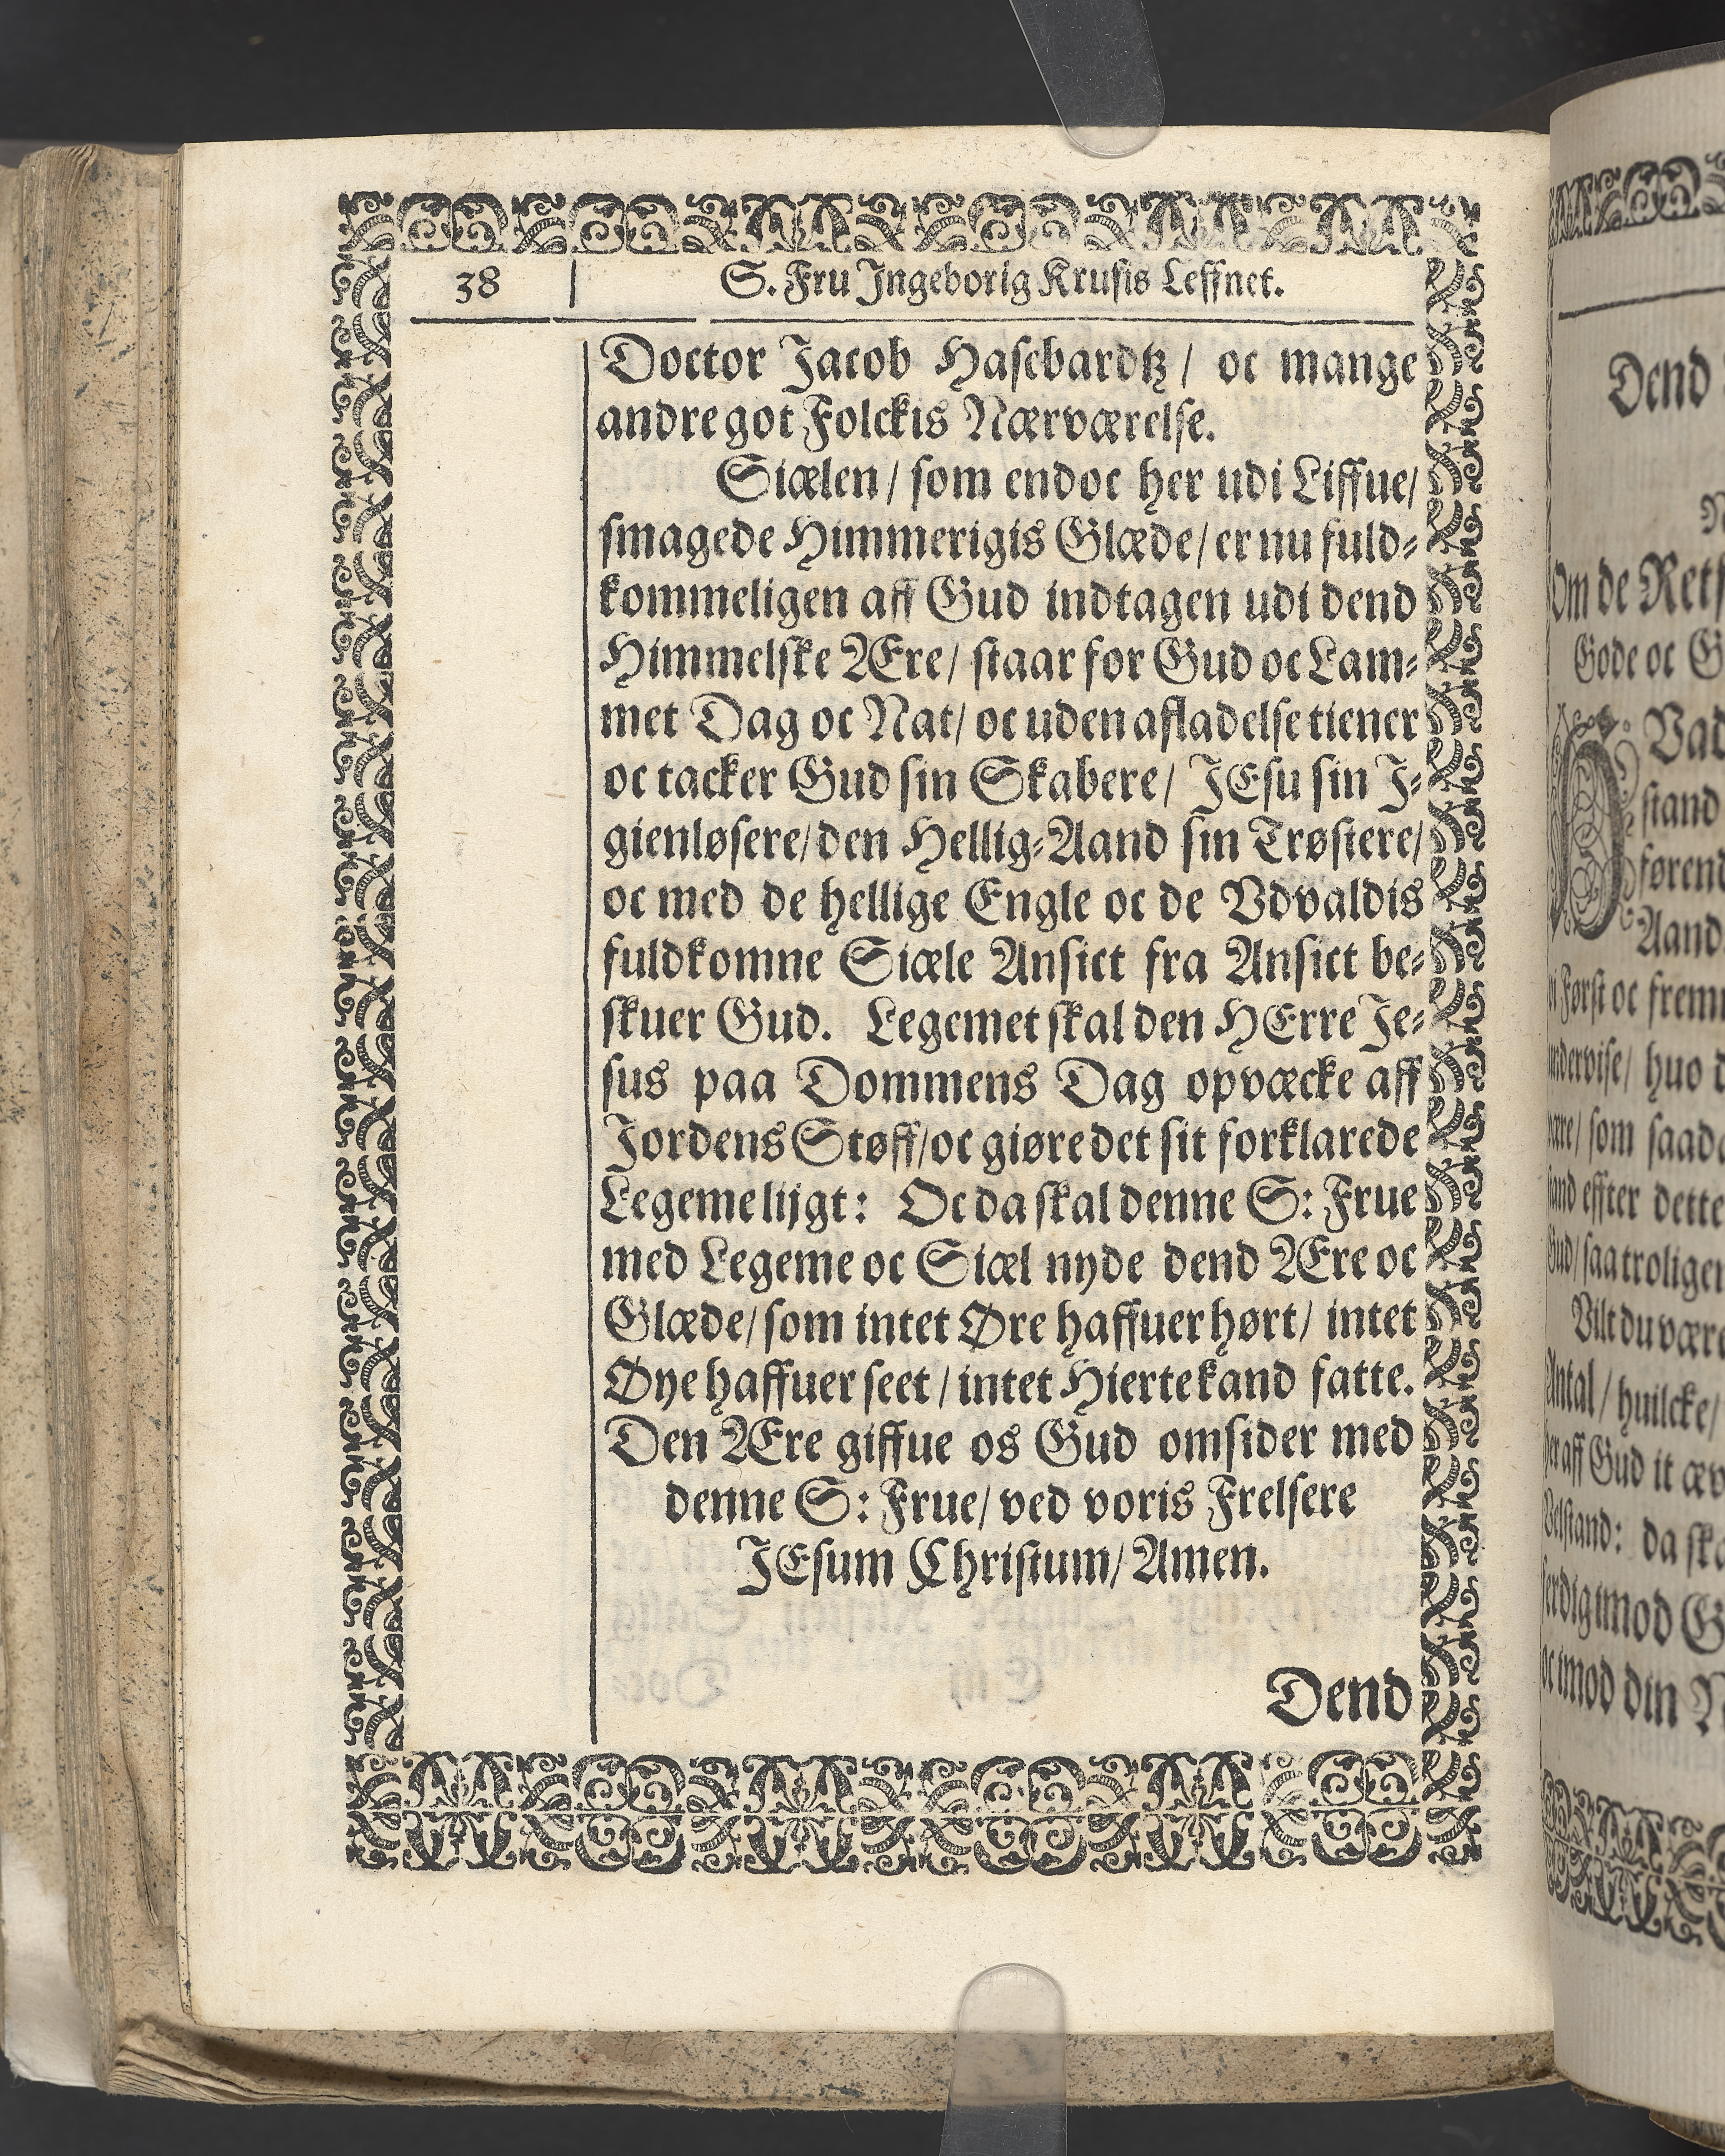 38 S. Fru Ingeborig Krusis Leffnet.
Doctor Jacob Hasebardtz / oc mange
andre got Folckis Nærværelse.
Siælen / som endoc her udi Liffue/
smagede Himmerigis Glæde/ er nu fuld-
kommeligen aff Gud indtagen udi dend
Himmelske Ære/ staar for Gud oc Lam-
met Dag oc Nat/ oc uden afladelse tiener
oc tacker Gud sin Skabere/ JEsu sin I-
gienløsere/ den Hellig-Aand sin Trøstere/
oc med de hellige Engle oc de Vdvaldis
fuldkomne Siæle Ansict fra Ansict be-
skuer Gud. Legemet skal den HErre Je-
sus paa Dommens Dag opvæcke aff
Jordens Støff/ oc giøre det sit forklarede
Legeme lijgt: Oc da skal denne S: Frue
med Legeme oc Siæl nyde dend Ære oc
Glæde/ som intet Øre haffuer hørt/ intet
Øye haffuer seet / intet Hierte kand fatte.
Den Ære giffue os Gud omsider med
denne S: Frue/ ved voris Frelsere
JEsum Christum/ Amen.
Dend
Dend
Om de Rets
Gode oc G
Vad
stand
førend
Aand
Først oc frem
undervise/ huo d
være/ som saad
effter dette
Gud/ saa troligen
Vilt du være
Antal / huilcke/
aff Gud it æv
Velstand: da sk
imod G
oc imod din N